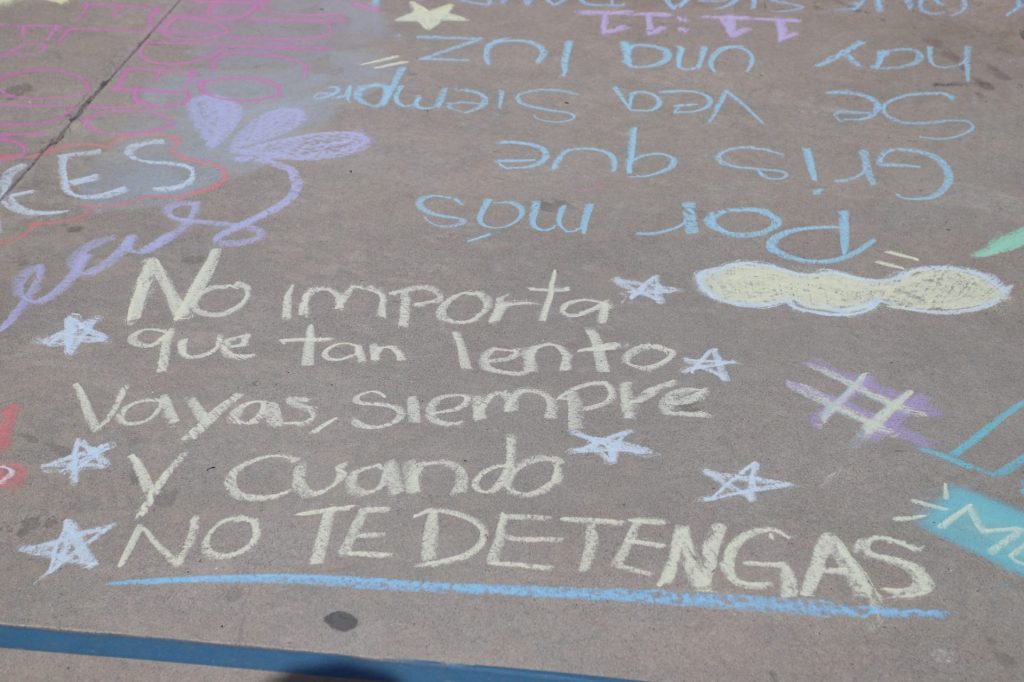 No importa
que tan lento
Vayas, siempre
y cuando
NO TE DETENGAS
Por más
Gris que
Se Vea Siempre
hay una luz
11:11
#